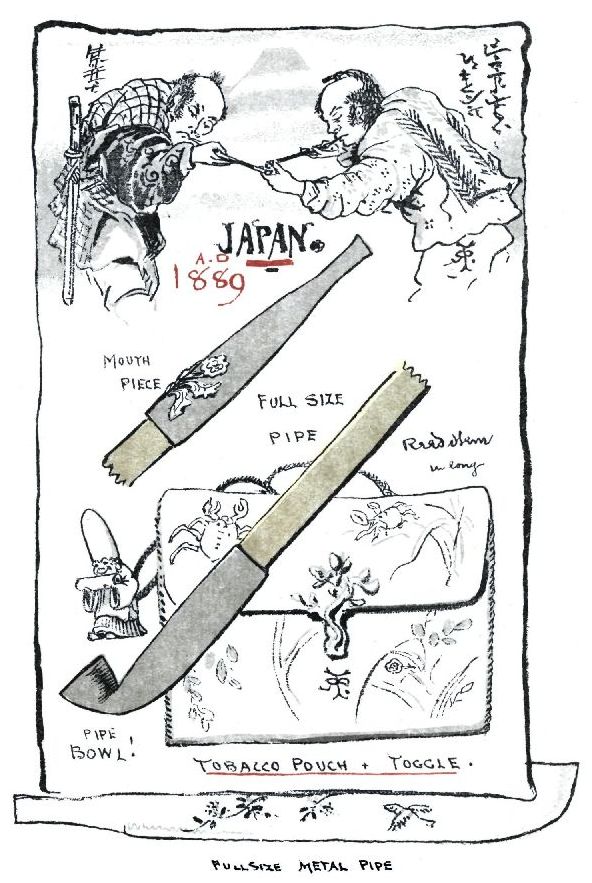 JAPAN.
A.D
1889
MOUTH
PIECE
FULL SIZE
PIPE
Reed stem
in long
PIPE
BOWL!
TOBACCO POUCH + TOGGLE.
FULLSIZE METAL PIPE